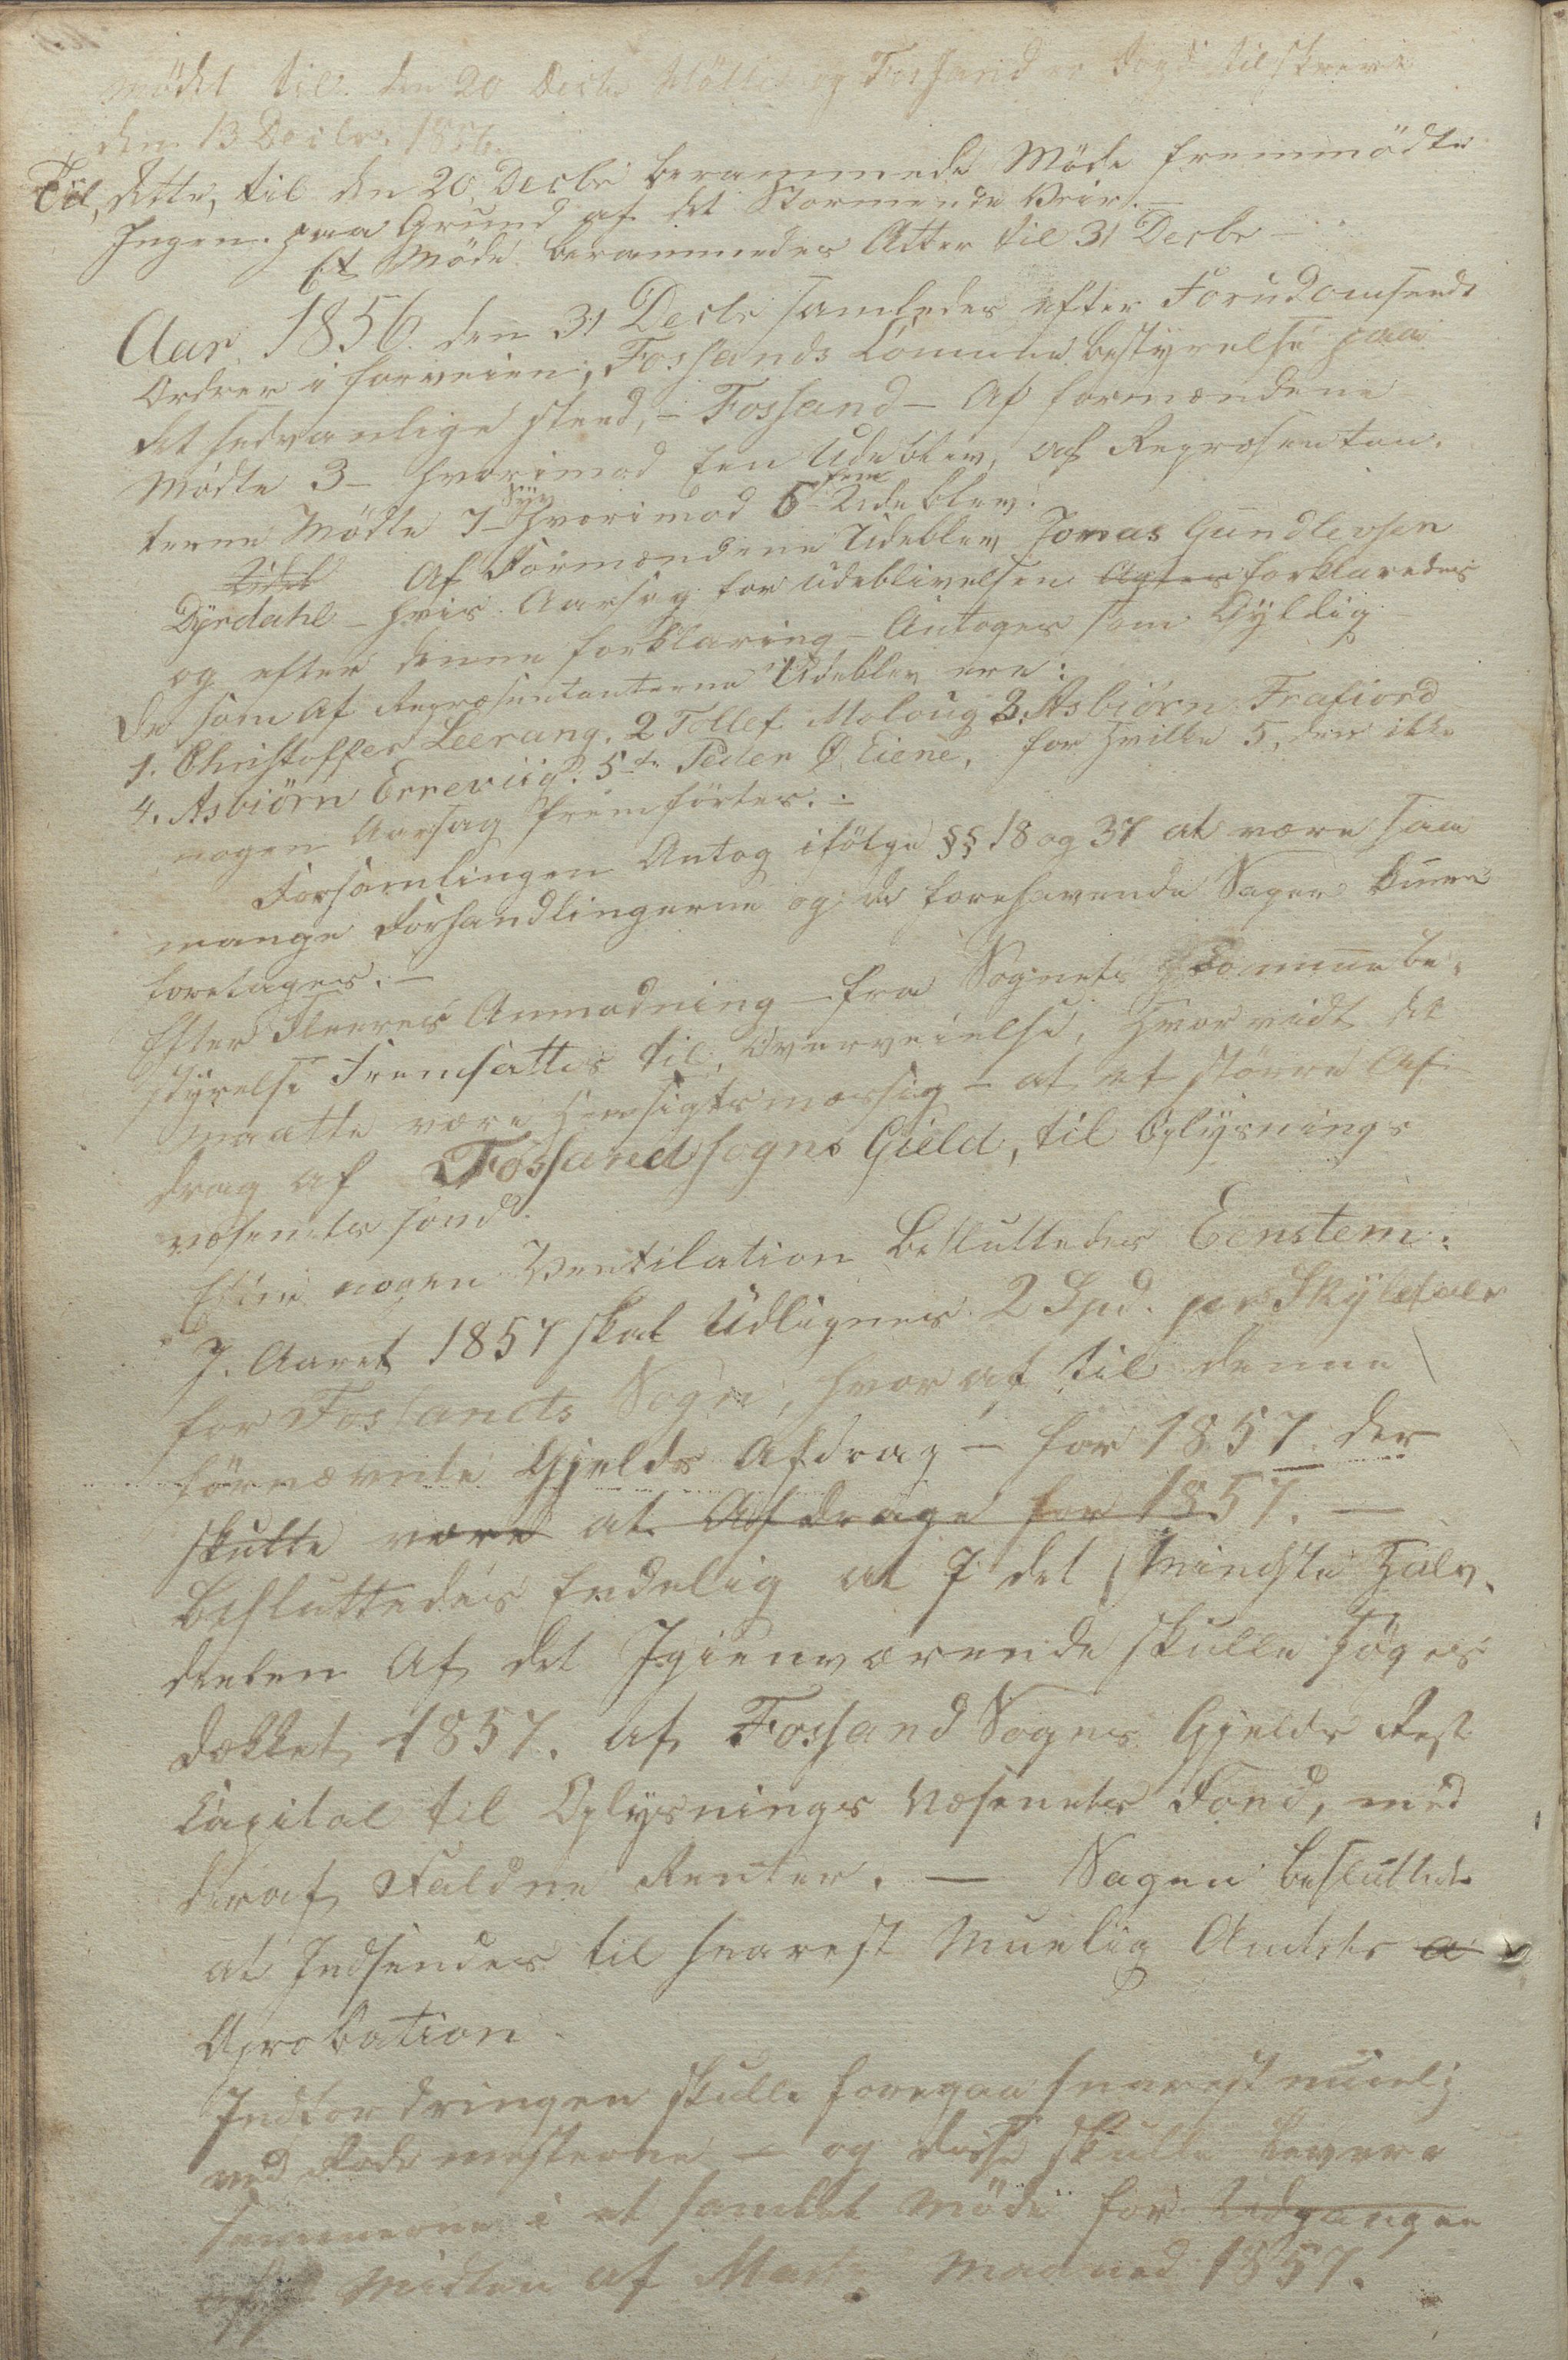 Mødet til den 20 Decbr Holles og Fossand er Dags tilskrevet
den 13 Decbr. 1856.
Til, dette, til den 20 Decbr berammede Møde fremmødte
Ingen. paa Grund af det Stormende Veir. —
Et Møde berammedes Atter til 31 Decbr —
Aar 1856. den 31 Decbr samledes efter Forudomsendt
Ordrer i forveien, Fossands Comune bestyrelse paa
det sedvanlige steed, — Fossand — Af formændene
Mødte 3 — hvorimod Een Udeblev, af Repræsentan-
terne Mødte 7 — Syv hvorimod 5 — fem Udeblev.
Af Formændene Udeblev Jonas Gundlevsen
Dyrdahl — hvis Aarsag for Udeblivelsen forklaredes
og efter denne forklaring — Antoges som Gyldig
De som af Repræsentanterne Udeblev ere:
1. Christoffer Leerang. 2 Tollef Moloug 3. Asbiörn Frafiord
4. Asbiörn Erreviig. 5te Peder Ø. Eiene, for Hvilke 5, der ikke
nogen Aarsag fremførtes. —
Forsamlingen Antog ifølge §§ 18 og 37 at være saa
mange Forhandlingerne og de forehavende Sager kunne
foretages. —
Efter Fleeres Anmodning — fra Sognets Commune be-
styrelse Fremsattes til, Overveielse, Hvorvidt det
maatte være Hensigtsmæssig — at et større Af-
drag af Fossand sogns Gield, til Oplysnings
væsenets fond.
Efter nogen Ventilation Besluttedes Eenstem:
I. Aaret 1857 skal Udlignes 2 Spd. pr Skylddaler
for Fossands Sogn, hvoraf til denne
førnævnte Gjelds Afdrag — for 1857 der
skulle være at Afdrage for 1857. —
Besluttedes Endelig at I det Mindste Halv-
delen Af det Igienværende skulle søges
dækket 1857. af Fossand Sogns Gjelds Rest
Capital til Oplysnings Væsenets Fond, med
deraf Faldne Renter. — Sagen besluttedes
at Indsendes til snarest Muelig Amtets a
Aprobation.
Indfordringen skulle foregaa snarest muelig
ved Rodemesterne — og disse skulle levere
Summerne i et samlet Møde for Udgangen
af Midten af Marts Maaned 1857.